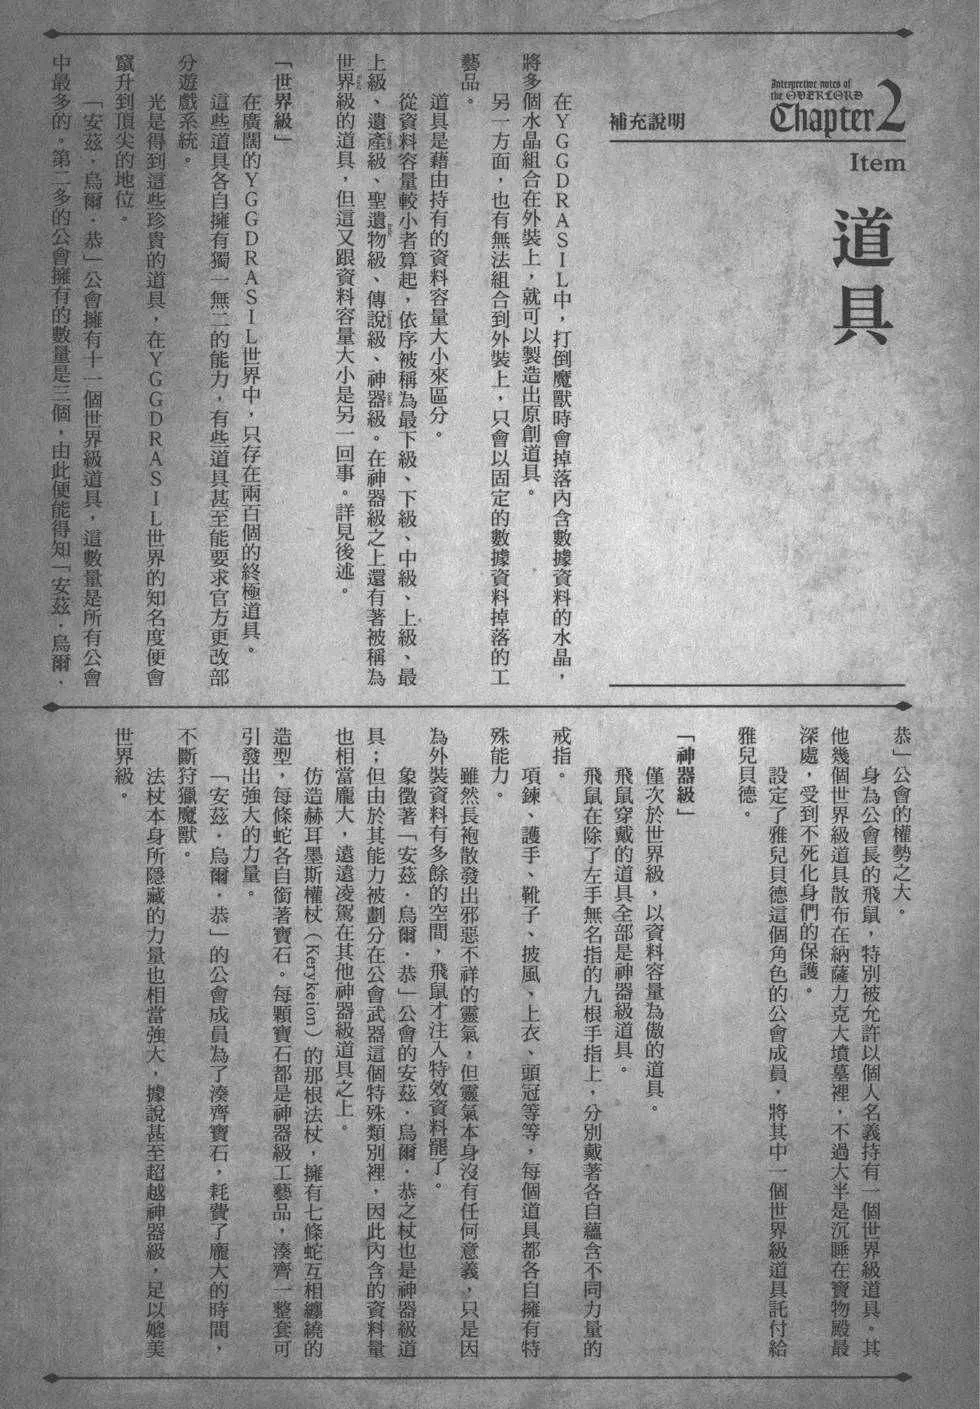 Interpretive notes of
the OVERLORD
Chapter 2
Item
道具
補充說明
在YGGDRASIL中，打倒魔獸時會掉落內含數據資料的水晶，
將多個水晶組合在外裝上，就可以製造出原創道具。
另一方面，也有無法組合到外裝上，只會以固定的數據資料掉落的工
藝品。
道具是藉由持有的資料容量大小來區分。
從資料容量較小者算起，依序被稱為最下級、下級、中級、上級、最
上級、遺產級、聖遺物級、傳說級、神器級。在神器級之上還有著被稱為
世界級的道具，但這又跟資料容量大小是另一回事。詳見後述。
「世界級」
在廣闊的YGGDRASIL世界中，只存在兩百個的終極道具。
這些道具各自擁有獨一無二的能力，有些道具甚至能要求官方更改部
分遊戲系統。
光是得到這些珍貴的道具，在YGGDRASIL世界的知名度便會
竄升到頂尖的地位。
「安茲．烏爾．恭」公會擁有十一個世界級道具，這數量是所有公會
中最多的。第二多的公會擁有的數量是三個，由此便能得知「安茲．烏爾．
恭」公會的權勢之大。
身為公會長的飛鼠，特別被允許以個人名義持有一個世界級道具。其
他幾個世界級道具散布在納薩力克大墳墓裡，不過大半是沉睡在寶物殿最
深處，受到不死化身們的保護。
設定了雅兒貝德這個角色的公會成員，將其中一個世界級道具託付給
雅兒貝德。
「神器級」
僅次於世界級，以資料容量為傲的道具。
飛鼠穿戴的道具全部是神器級道具。
飛鼠在除了左手無名指的九根手指上，分別戴著各自蘊含不同力量的
戒指。
項鍊、護手、靴子、披風、上衣、頭冠等等，每個道具都各自擁有特
殊能力。
雖然長袍散發出邪惡不祥的靈氣，但靈氣本身沒有任何意義，只是因
為外裝資料有多餘的空間，飛鼠才注入特效資料罷了。
象徵著「安茲．烏爾．恭」公會的安茲．烏爾．恭之杖也是神器級道
具；但由於其能力被劃分在公會武器這個特殊類別裡，因此內含的資料量
也相當龐大，遠遠凌駕在其他神器級道具之上。
仿造赫耳墨斯權杖（Kerykeion）的那根法杖，擁有七條蛇互相纏繞的
造型，每條蛇各自銜著寶石。每顆寶石都是神器級工藝品，湊齊一整套可
引發出強大的力量。
「安茲．烏爾．恭」的公會成員為了湊齊寶石，耗費了龐大的時間，
不斷狩獵魔獸。
法杖本身所隱藏的力量也相當強大，據說甚至超越神器級，足以媲美
世界級。